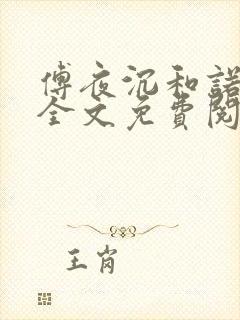 傅夜沉和諾
全文免費閱
王肖